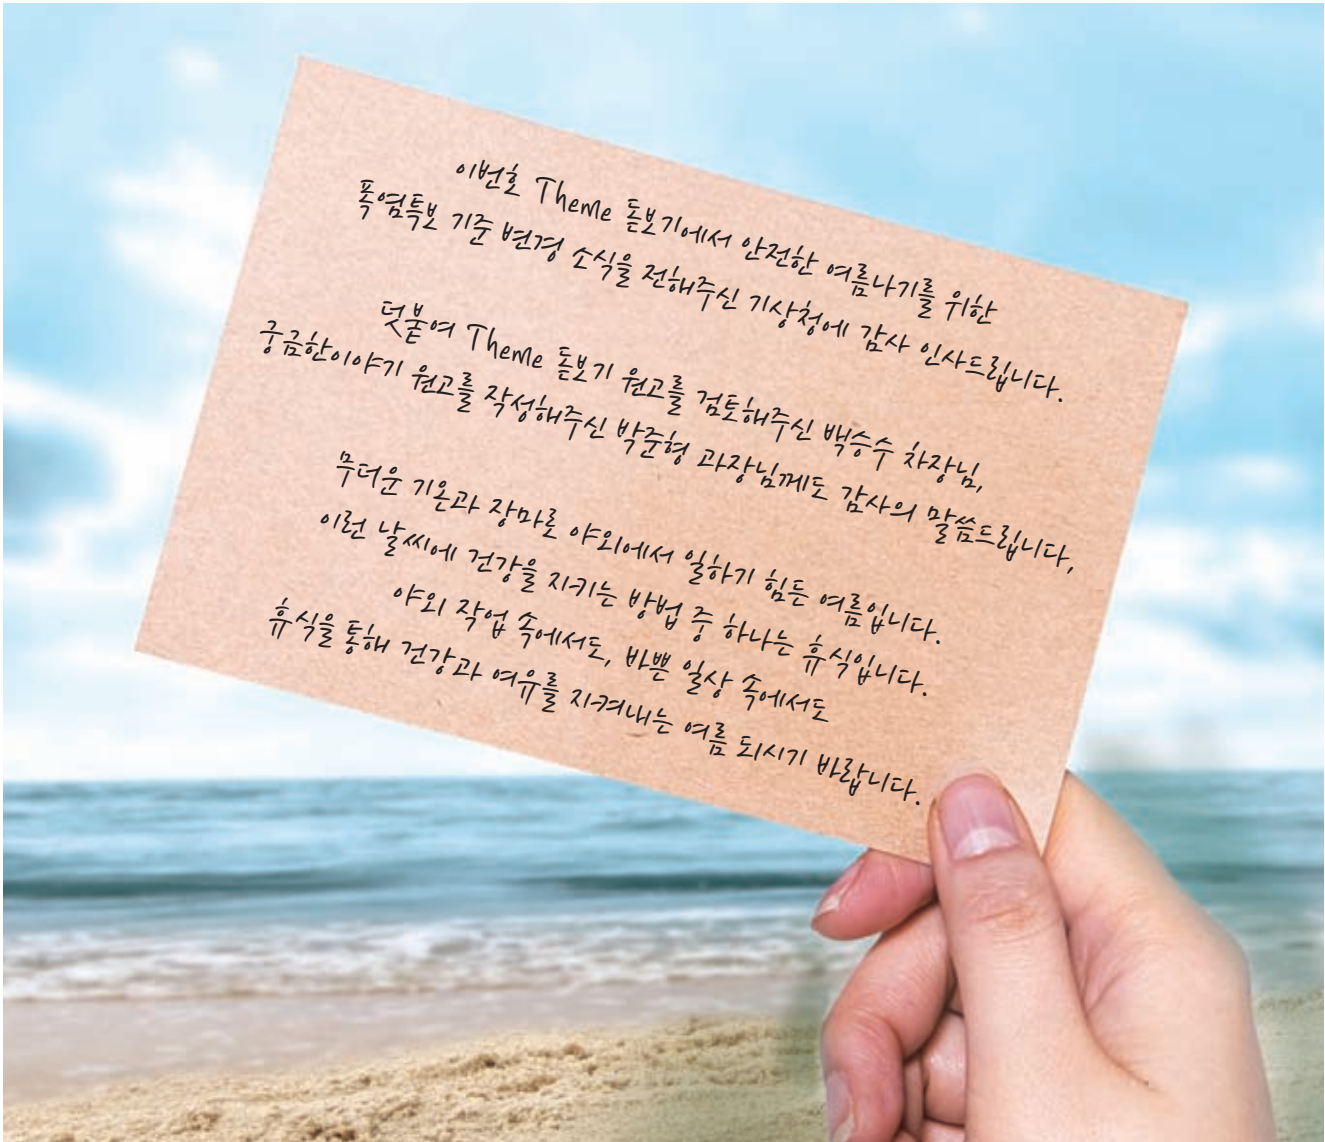 이번호 Theme 돋보기에서 안전한 여름나기를 위한
폭염특보 기준 변경 소식을 전해주신 기상청에 감사 인사드립니다.
덧붙여 Theme 돋보기 원고를 검토해주신 백승수 차장님,
궁금한이야기 원고를 작성해주신 박준형 과장님께도 감사의 말씀드립니다,
무더운 기온과 장마로 야외에서 일하기 힘든 여름입니다.
이런 날씨에 건강을 지키는 방법 중 하나는 휴식입니다.
야외 작업 속에서도, 바쁜 일상 속에서도
휴식을 통해 건강과 여유를 지켜내는 여름 되시기 바랍니다.